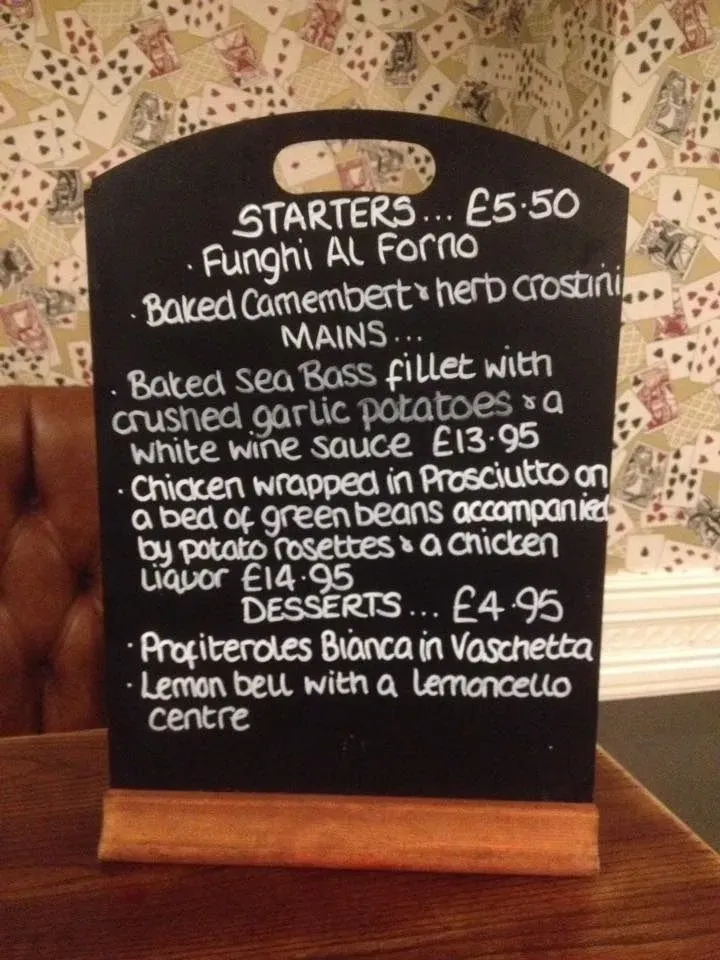 STARTERS... £5.50
· Funghi Al Forno
· Baked Camembert & herb crostini
MAINS...
· Baked Sea Bass fillet with
crushed garlic potatoes & a
white wine sauce £13.95
· Chicken wrapped in Prosciutto on
a bed of green beans accompanied
by potato rosettes & a chicken
liquor £14.95
DESSERTS... £4.95
· Profiteroles Bianca in Vaschetta
· Lemon bell with a lemoncello
centre